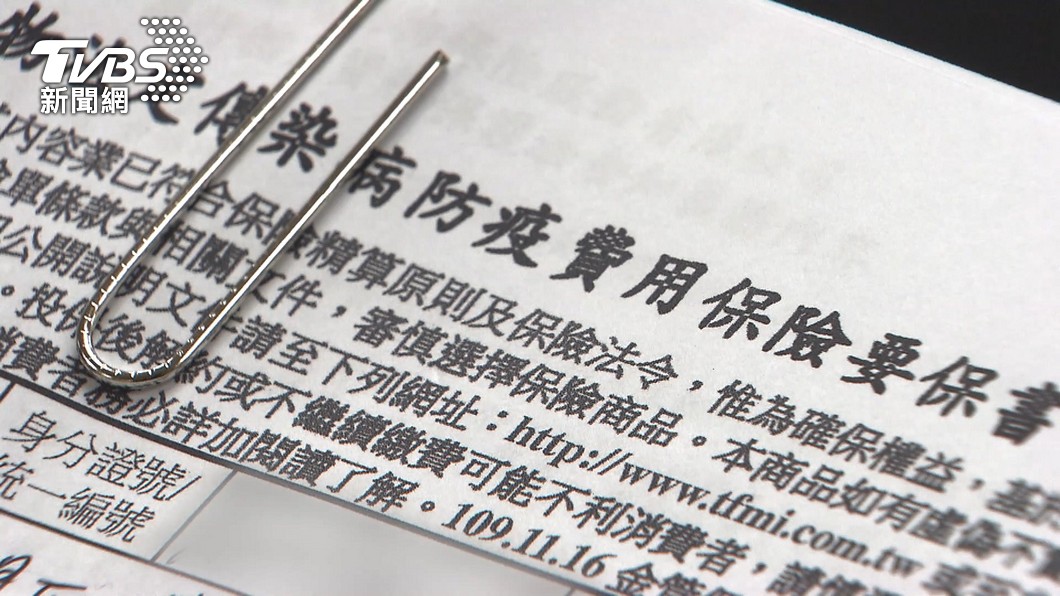 TVBS
新聞網
傳染病防疫費用保險要保書
內容業已符合保險精算原則及保險法令，惟為確保權益，基於
單條款與相關文件，審慎選擇保險商品。本商品如有虛偽不
公開說明文件請至下列網址：http://www.tfmi.com.tw
。投保後解約或不繼續繳費可能不利消費者，請慎
消費者務必詳加閱讀了解。109.11.16 金管
身分證號/
統一編號